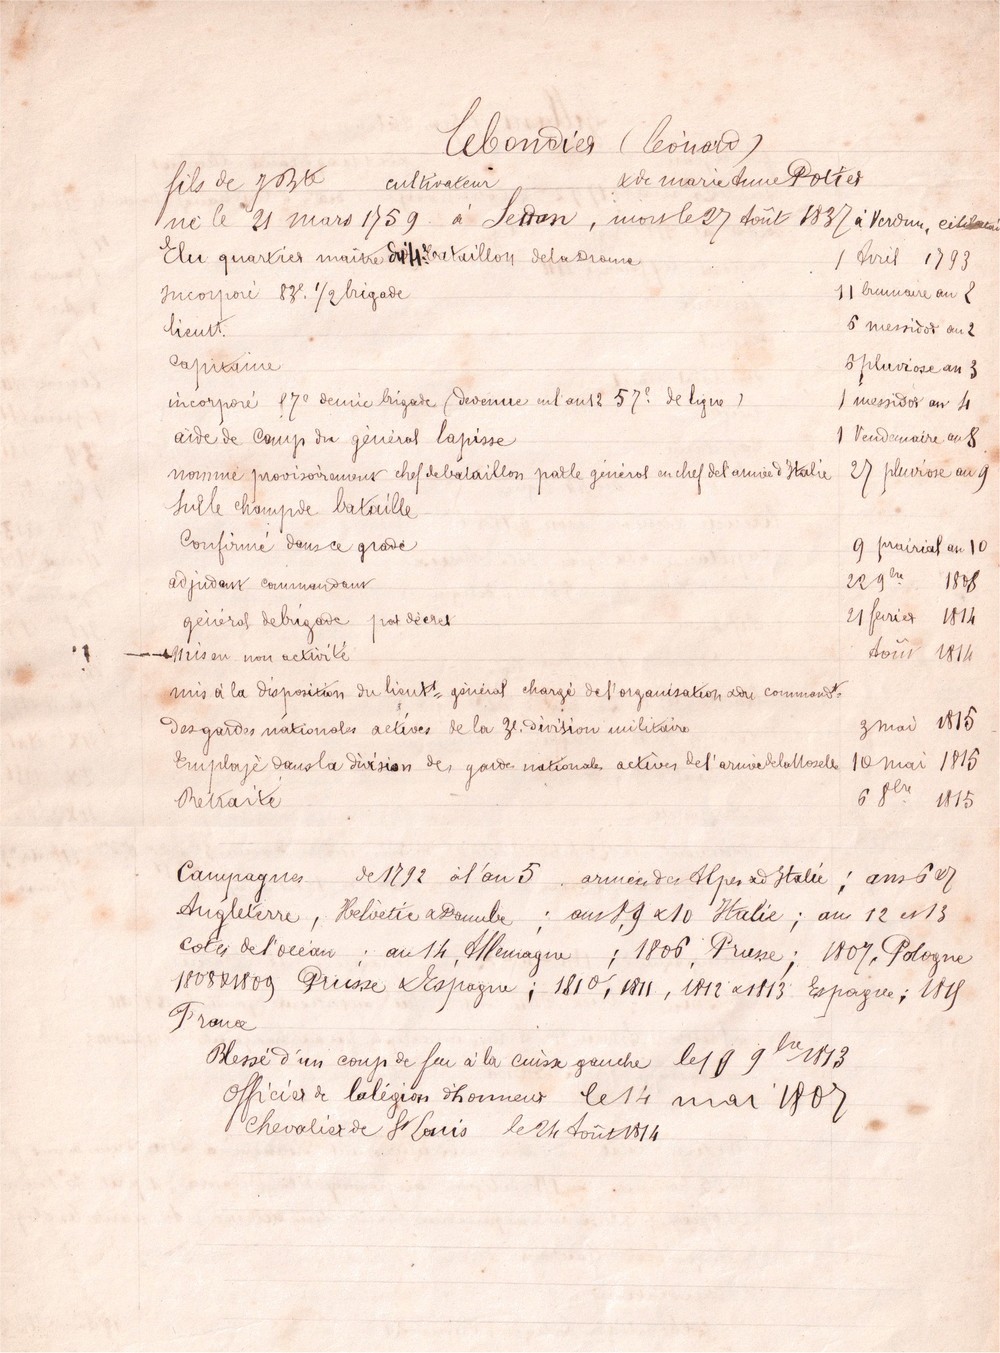 Lebondier (Léonard)
fils de cultivateur & de marie Anne Potier
né le 21 mars 1759 à Seddan, mort le 27 Août 1837 à Verdun,
Elu quartier maitre du 4e bataillon de la Drome 1 Avril 1793
Incorporé 83e. 1/2 brigade 11 brumaire an 2
lieutt. 6 messidor an 2
Capitaine 3 pluviose an 3
incorporé 57e demie brigade (devenue en l'an 12 57e. de ligne) 1 messidor an 4
aide de Camp du général Lapisse 1 Vendemaire an 8
nommé provisoirement chef de bataillon par le général en chef de l'armée d'Italie 27 pluviose an 9
sur le champ de bataille
Confirmé dans ce grade 9 prairial an 10
adjudant commandant 22 9bre 1808
général de brigade par décret 21 fevrier 1814
Mis en non activité Août 1814
mis à la disposition du lieutt. général chargé de l'organisation & du commandt.
des gardes nationales actives de la 3e. division militaire 3 mai 1815
Employé dans la division des gardes nationales actives de l'armée de la Moselle 10 mai 1815
Retraité 6 8bre 1815
Campagnes de 1792 à l'an 5 armées des Alpes & d'Italie ; ans 6 & 7
Angleterre, Helvetie & Danube ; ans 8, 9 & 10 Italie ; an 12 et 13
cotes de l'océan ; an 14, Allemagne ; 1806, Prusse ; 1807, Pologne
1808 & 1809 Prusse & Espagne ; 1810, 1811, 1812 & 1813 Espagne ; 1815
France
Blessé d'un coup de feu à la cuisse gauche le 9bre 1813
Officier de la légion d'honneur le 14 mai 1807
Chevalier de St Louis le 24 Août 1814